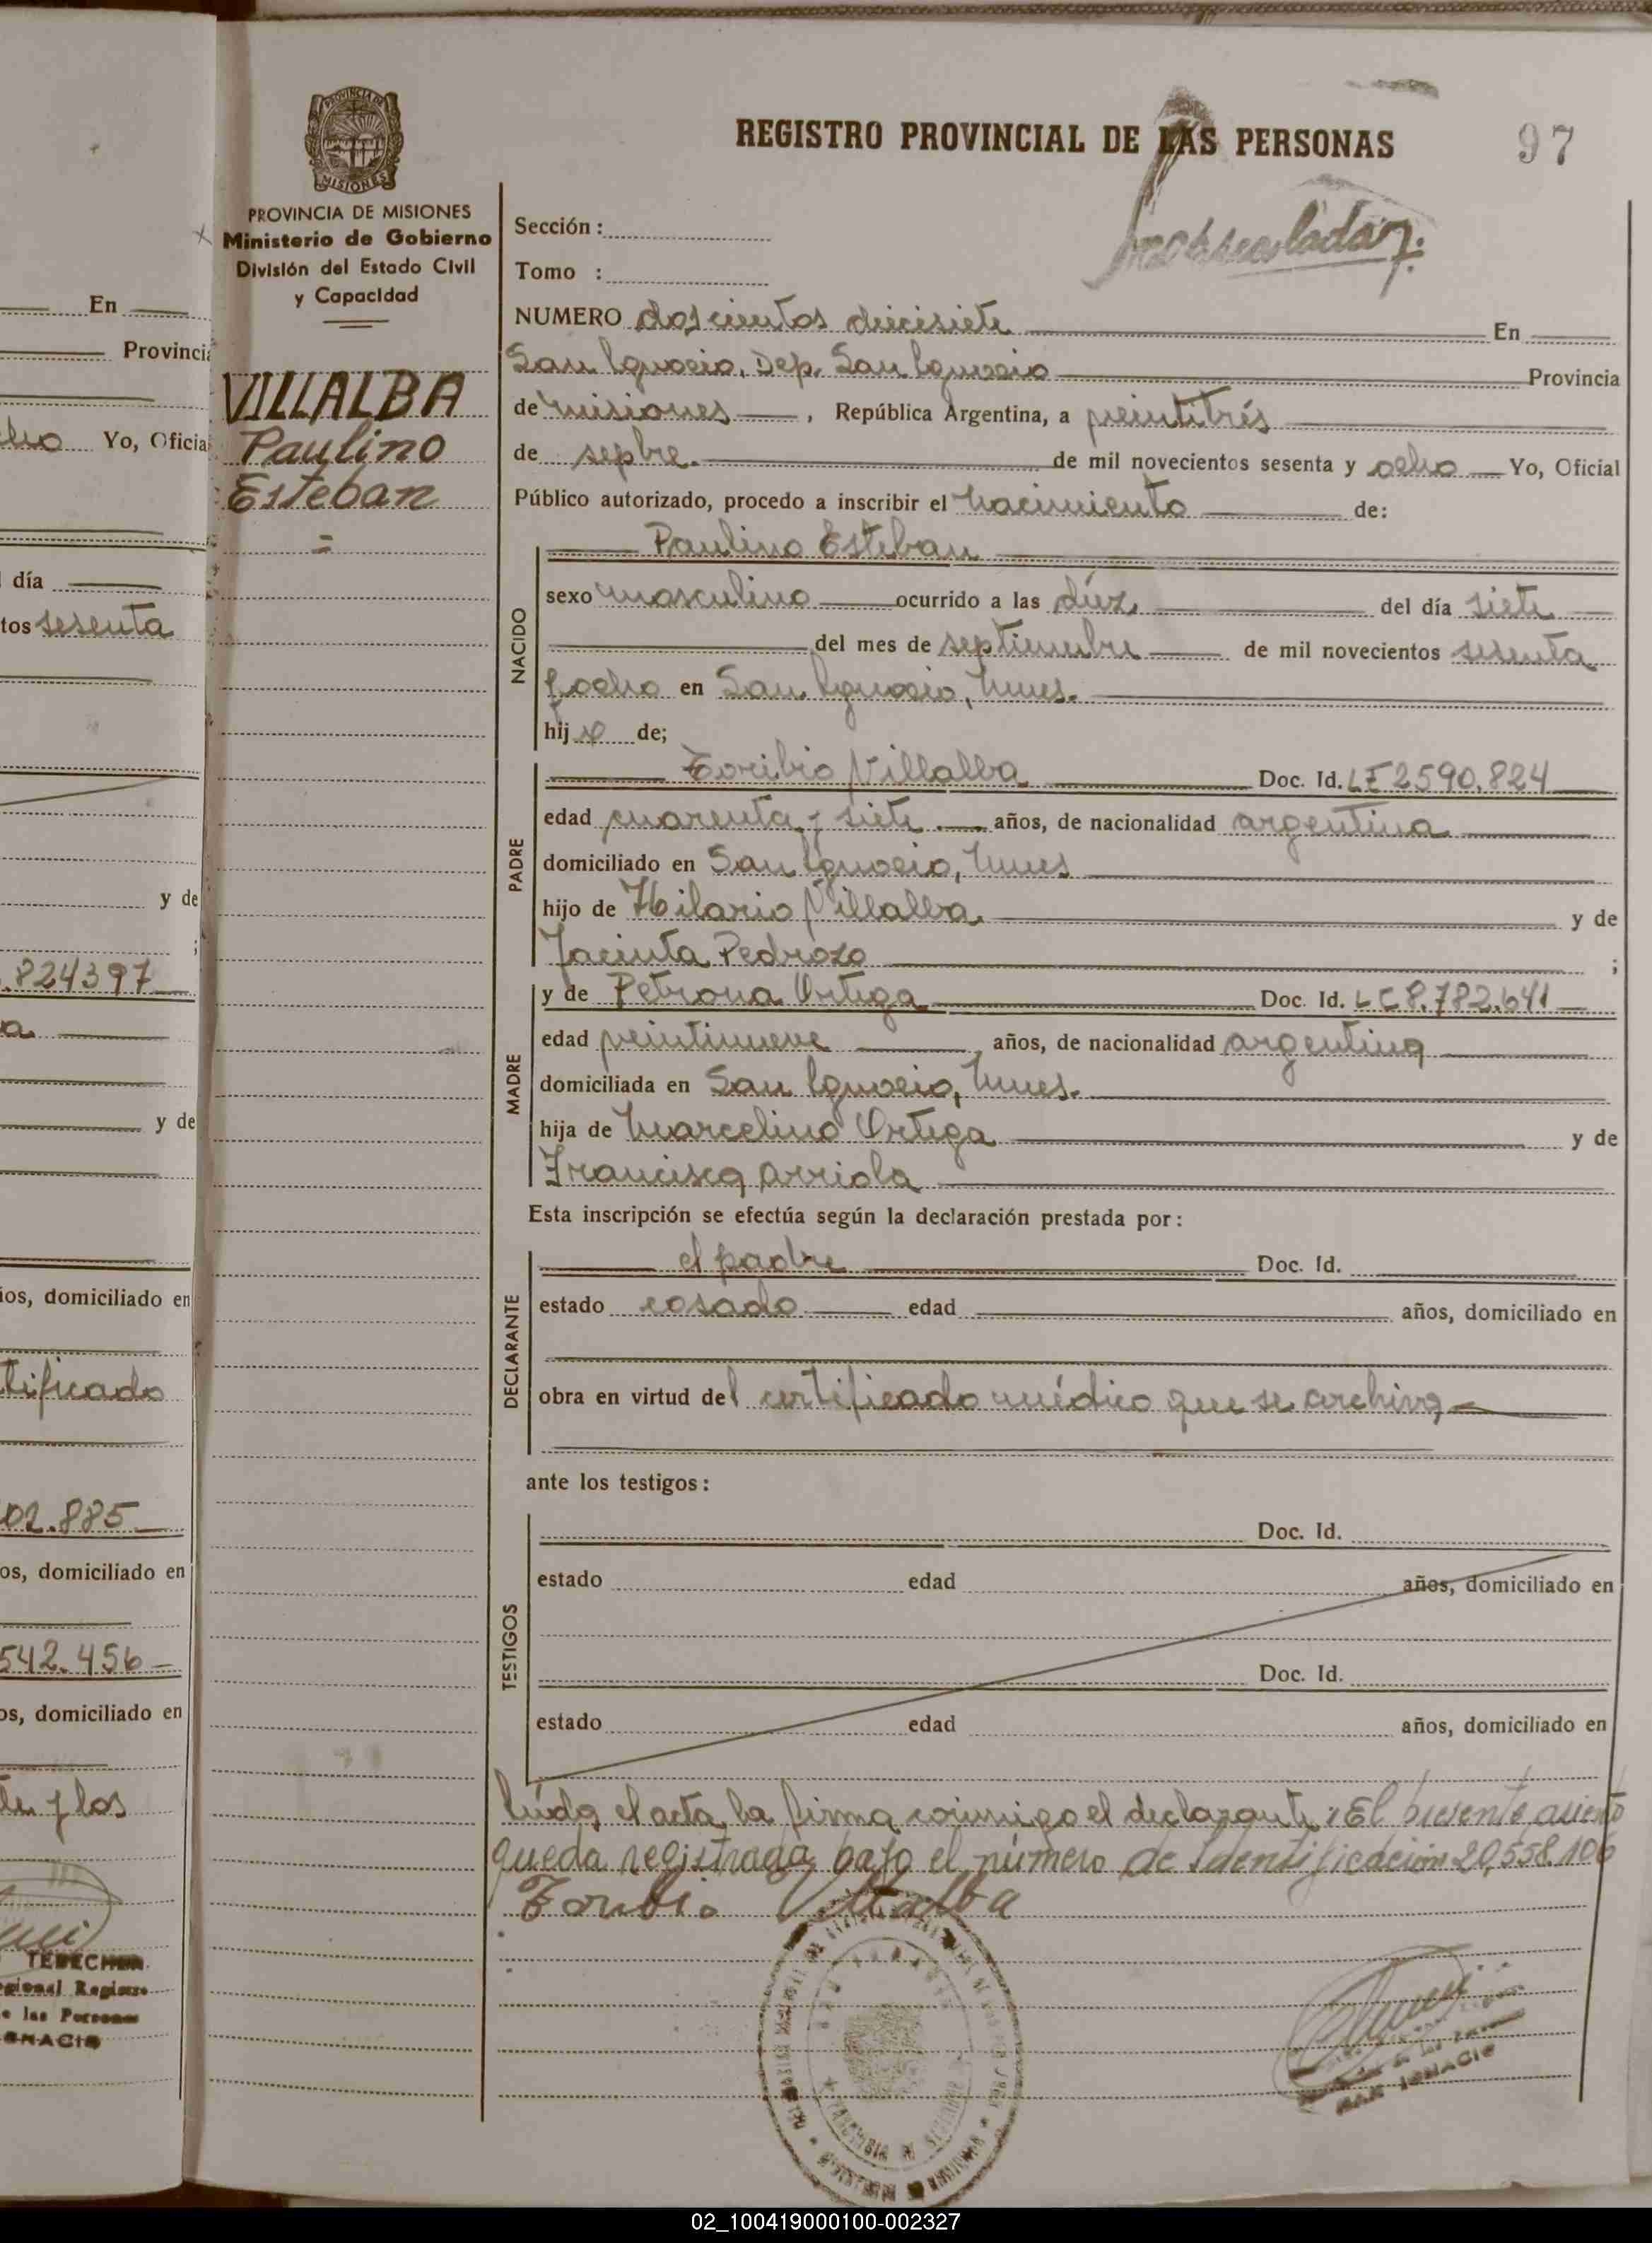 REGISTRO PROVINCIAL DE LAS PERSONAS
97
PROVINCIA DE
MISIONES
PROVINCIA DE MISIONES
Ministerio de Gobierno
División del Estado Civil
y Capacidad
VILLALBA
Paulino
Esteban
=
Sección :
Tomo :
NUMERO doscientos diecisiete En
San Ignacio, Dep. San Ignacio Provincia
de misiones , República Argentina, a veintitrés
de sepbre. de mil novecientos sesenta y ocho Yo, Oficial
Público autorizado, procedo a inscribir el nacimiento de:
NACIDO
Paulino Esteban
sexo masculino ocurrido a las diez del día siete
del mes de septiembre de mil novecientos sesenta
y ocho en San Ignacio, Mnes.
hijo de;
PADRE
Toribio Villalba Doc. Id. LE 2590.824
edad cuarenta y siete años, de nacionalidad argentina
domiciliado en San Ignacio, Mnes
hijo de Hilario Villalba y de
Jacinta Pedrozo ;
MADRE
y de Petrona Ortega Doc. Id. LC 8.782.641
edad veintinueve años, de nacionalidad argentina
domiciliada en San Ignacio, Mnes.
hija de Marcelino Ortega y de
Francisca Arriola
Esta inscripción se efectúa según la declaración prestada por:
DECLARANTE
el padre Doc. Id.
estado casado edad años, domiciliado en
obra en virtud del certificado médico que se archiva
ante los testigos:
TESTIGOS
Doc. Id.
estado edad años, domiciliado en
Doc. Id.
estado edad años, domiciliado en
Leída el acta la firma conmigo el declarante : El presente asiento
queda registrada bajo el número de Identificación 20.558.106
Toribio Villalba
SAN IGNACIO
En
Provincia
Yo, Oficia
día
tos sesenta
y de
;
.824397
a
y de
ios, domiciliado en
tificado
02.885
os, domiciliado en
542.456
os, domiciliado en
te y los
gional Registro
e las Personas
GNACIO
02_100419000100-002327